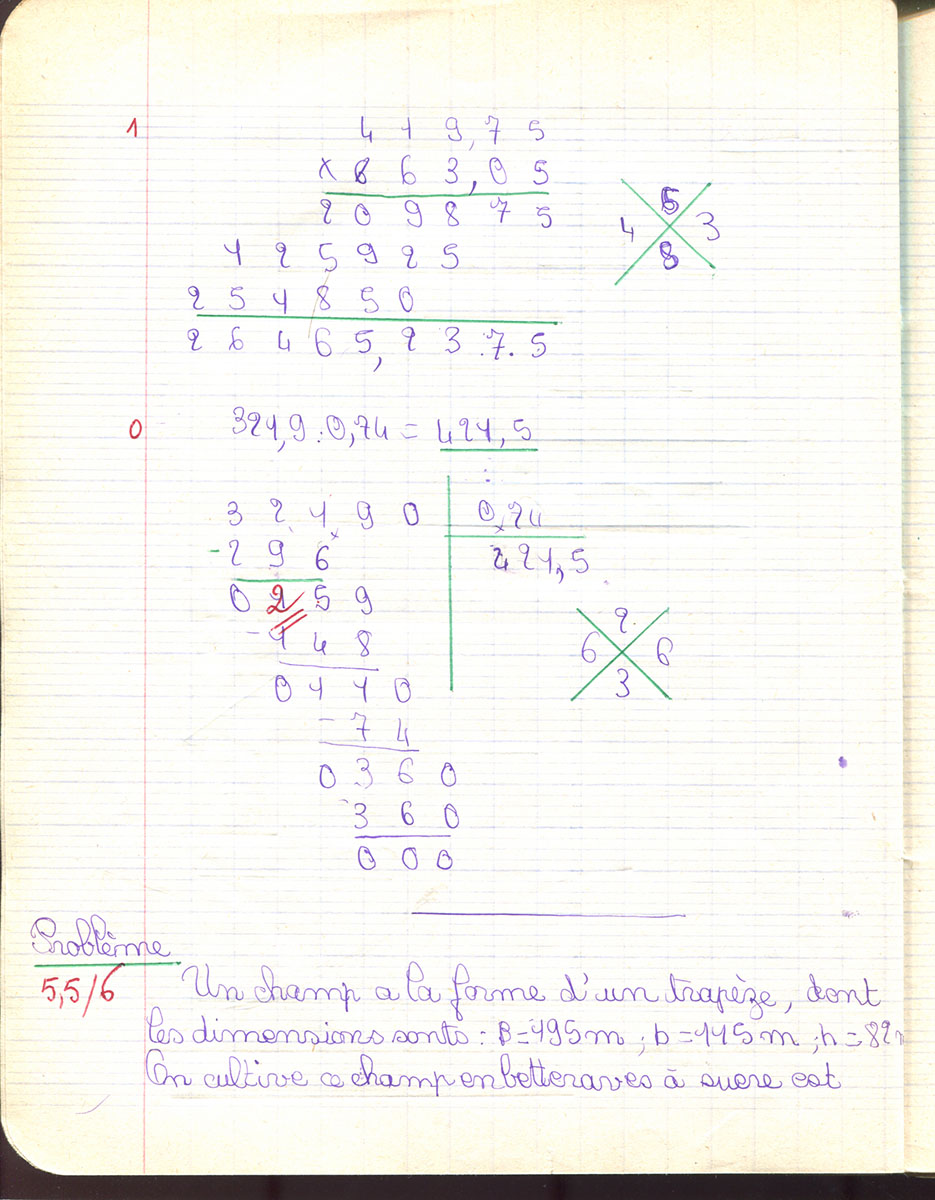 1
4 1 9,7 5
x 6 6 3,0 5
2 0 9 8 7 5
1 2 5 9 2 5
2 5 1 8 5 0
2 6 4 6 5,2 3.7.5
5
4 3
8
0
321,9 : 0,74 = 421,5
3 2 1 9 0
0,74
- 2 9 6
421,5
0 2 5 9
- 1 4 8
0 1 1 0
- 7 4
0 3 6 0
3 6 0
0 0 0
2
6 6
3
Problème
5,5/6
Un champ a la forme d'un trapèze, dont
les dimensions sonts : B=195m ; b=115m ; h=82m
On cultive ce champ en betteraves à sucre est